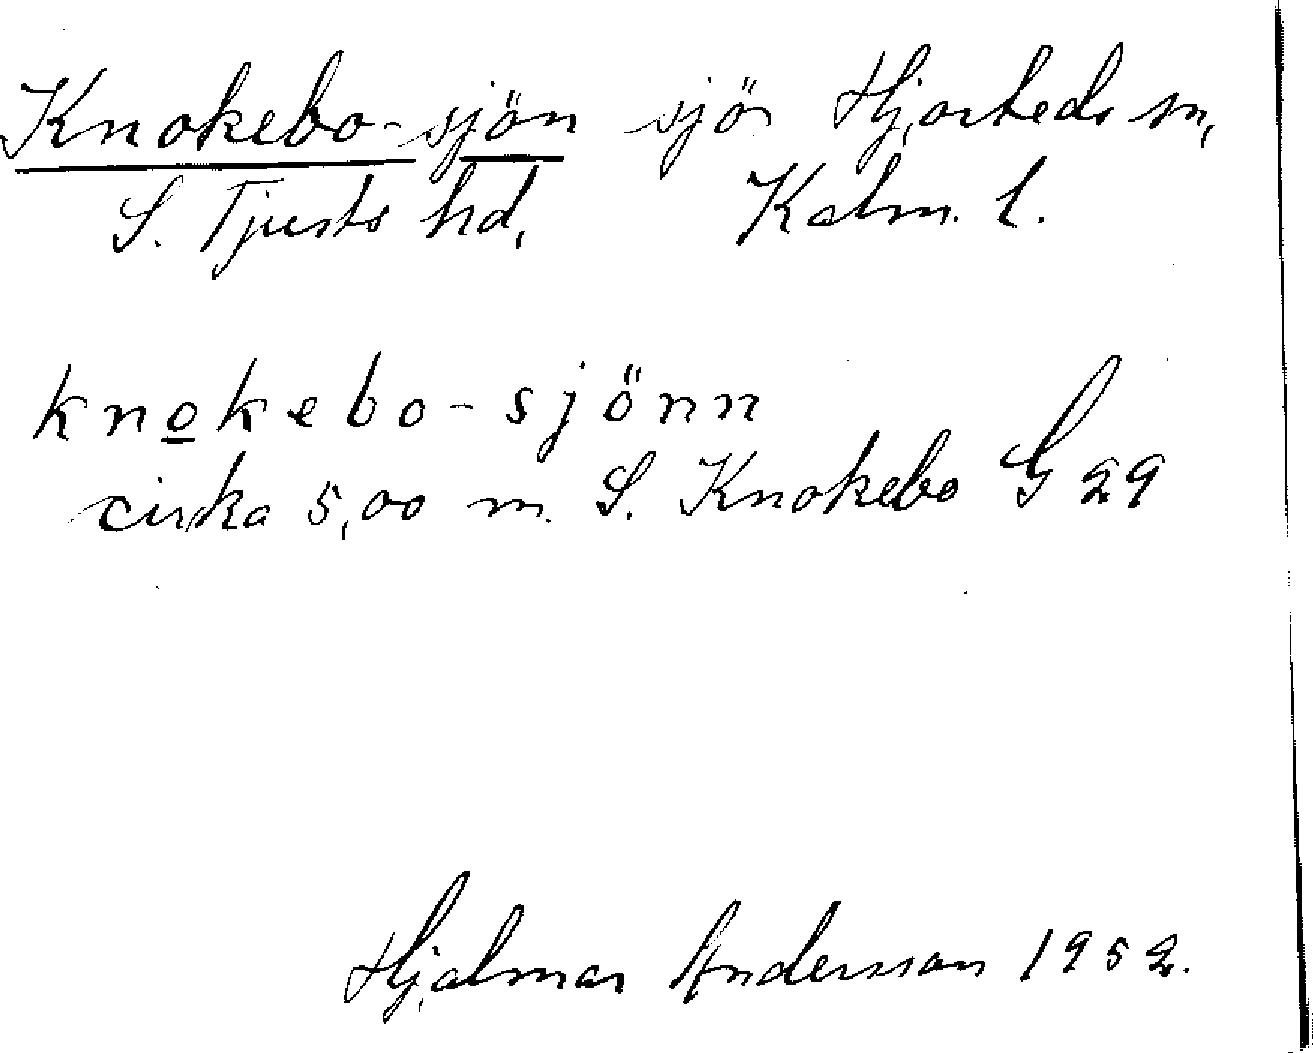 Knokebo-sjön sjö Hjorteds sn,
S. Tjusts hd, Kalm. l.
knokebo-sjönn
cirka 5,00 m. S. Knokebo G 29
Hjalmar Andersson 1952.